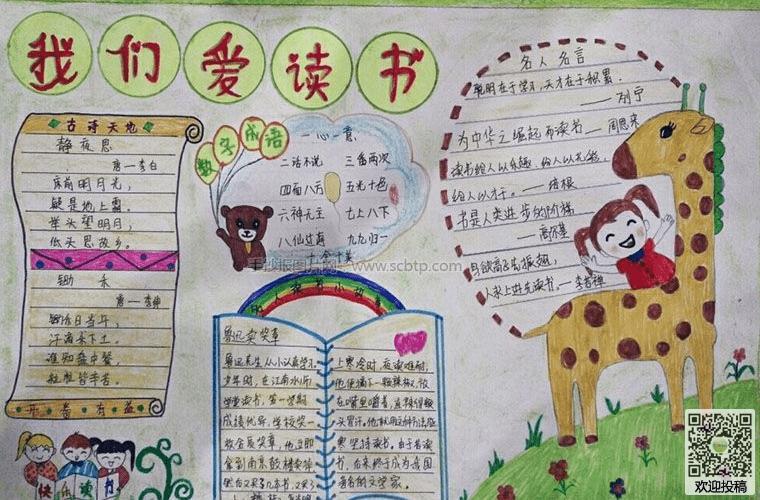 我们爱读书
古诗天地
静夜思
唐—李白
床前明月光，
疑是地上霜。
举头望明月，
低头思故乡。
锄禾
唐—李绅
锄禾日当午，
汗滴禾下土。
谁知盘中餐，
粒粒皆辛苦。
开卷有益
快乐读书
数字成语
一心一意
二话不说 三番两次
四面八方 五光十色
六神无主 七上八下
八仙过海 九九归一
十全十美
手抄报图片网 www.scbtp.com
名人读书小故事
鲁迅卖奖章
鲁迅先生从小认真学习。
少年时，在江南水师
学堂读书，第一学期
成绩优异，学校奖一
枚金质奖章，他立即
拿到南京鼓楼街卖掉
上寒冷时，夜读难耐，
他便摘下一颗辣椒，放
在嘴里嚼着，直辣得额
头冒汗。他就用这种办法驱
寒坚持读书。由于苦读
书，后来终于成为我国
著名的文学家。
名人名言
聪明在于学习，天才在于积累。
——列宁
为中华之崛起而读书——周恩来
读书给人以乐趣，给人以光彩，
给人以才干。——培根
书是人类进步的阶梯。
高尔基
欢迎投稿